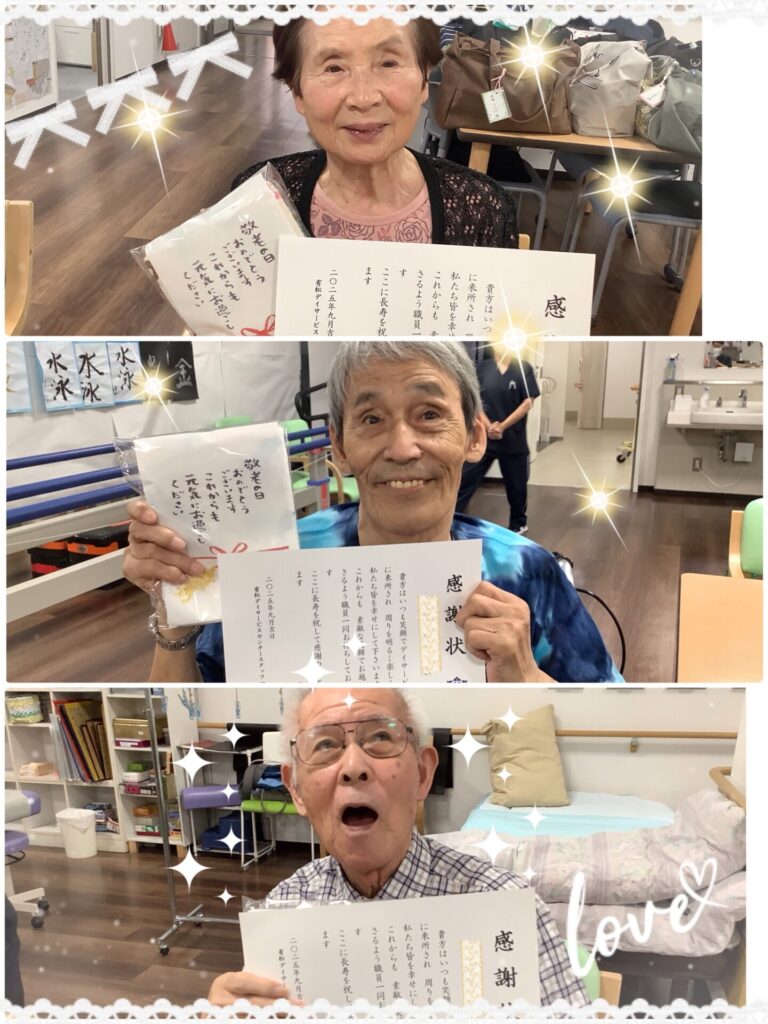 敬老の日
おめでとう
ございます
これからも
元気にお過ごし
ください
感
貴方はいつ
に来所され 周り
私たち皆を幸せ
これからも 素敵
さるよう職員一同
す
ここに長寿を祝
ます
二〇二五年九月吉
有松デイサービス
水泳
水泳
水泳
金
敬老の日
おめでとう
ございます
これからも
元気にお過ごし
ください
感謝状
貴方はいつも笑顔でデイサービ
に来所され 周りを明るく楽し
私たち皆を幸せにして下さいま
これからも 素敵な笑顔でお越
さるよう職員一同お待ちしてお
す
ここに長寿を祝して感謝の
ます
二〇二五年九月吉日
有松デイサービスセンタースタッフ
感謝状
貴方はいつも笑顔
に来所され 周りを明
私たち皆を幸せに
これからも 素敵
さるよう職員一
す
ここに長寿を祝し
ます
二〇二五年九月
有松デイサービ
love